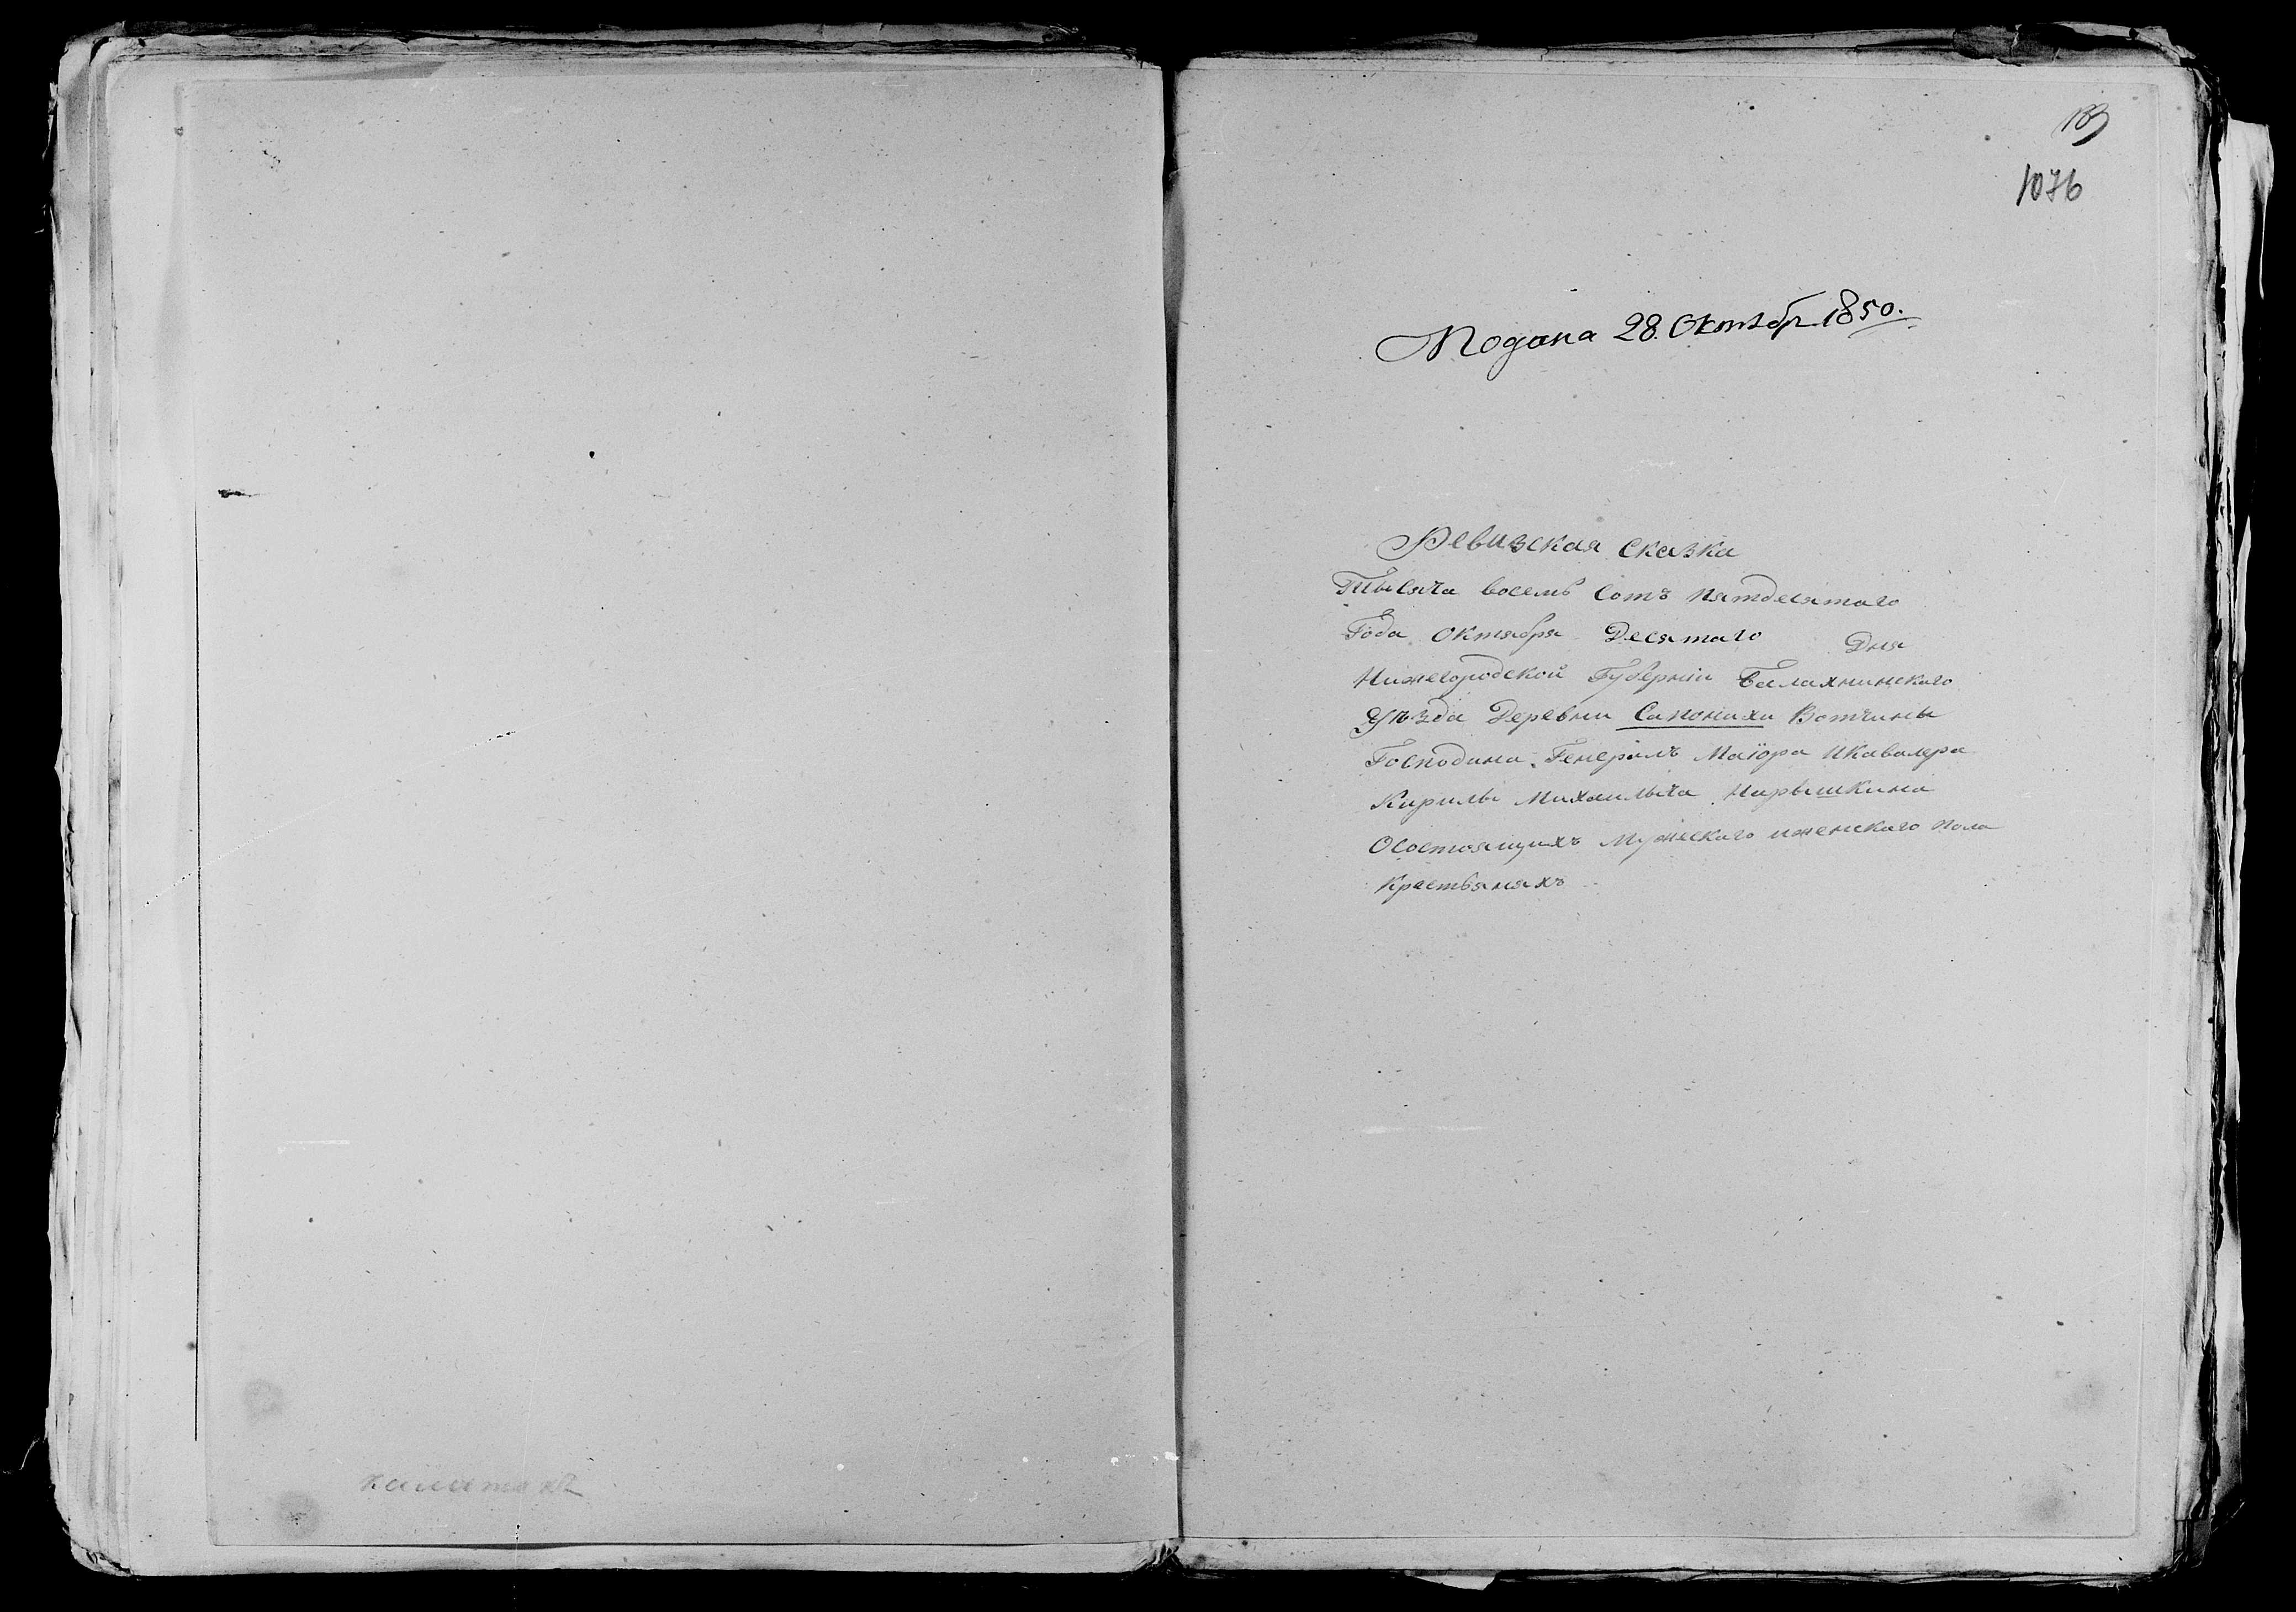 1076
Подана 28. Октябр. 1850.
Ревизская Сказка
Тысяча восемь Сотъ пятдесятаго
Года Октября Десятаго Дня
Нижегородской Губерніи Балахнинскаго
Уѣзда Деревни Сапонихи Вотчины
Господина Генералъ Маіора Икавалера
Кирилы Михаилыча Нарышкина
Осостоящихъ Мужескаго иженскаго пола
Крестьянахъ